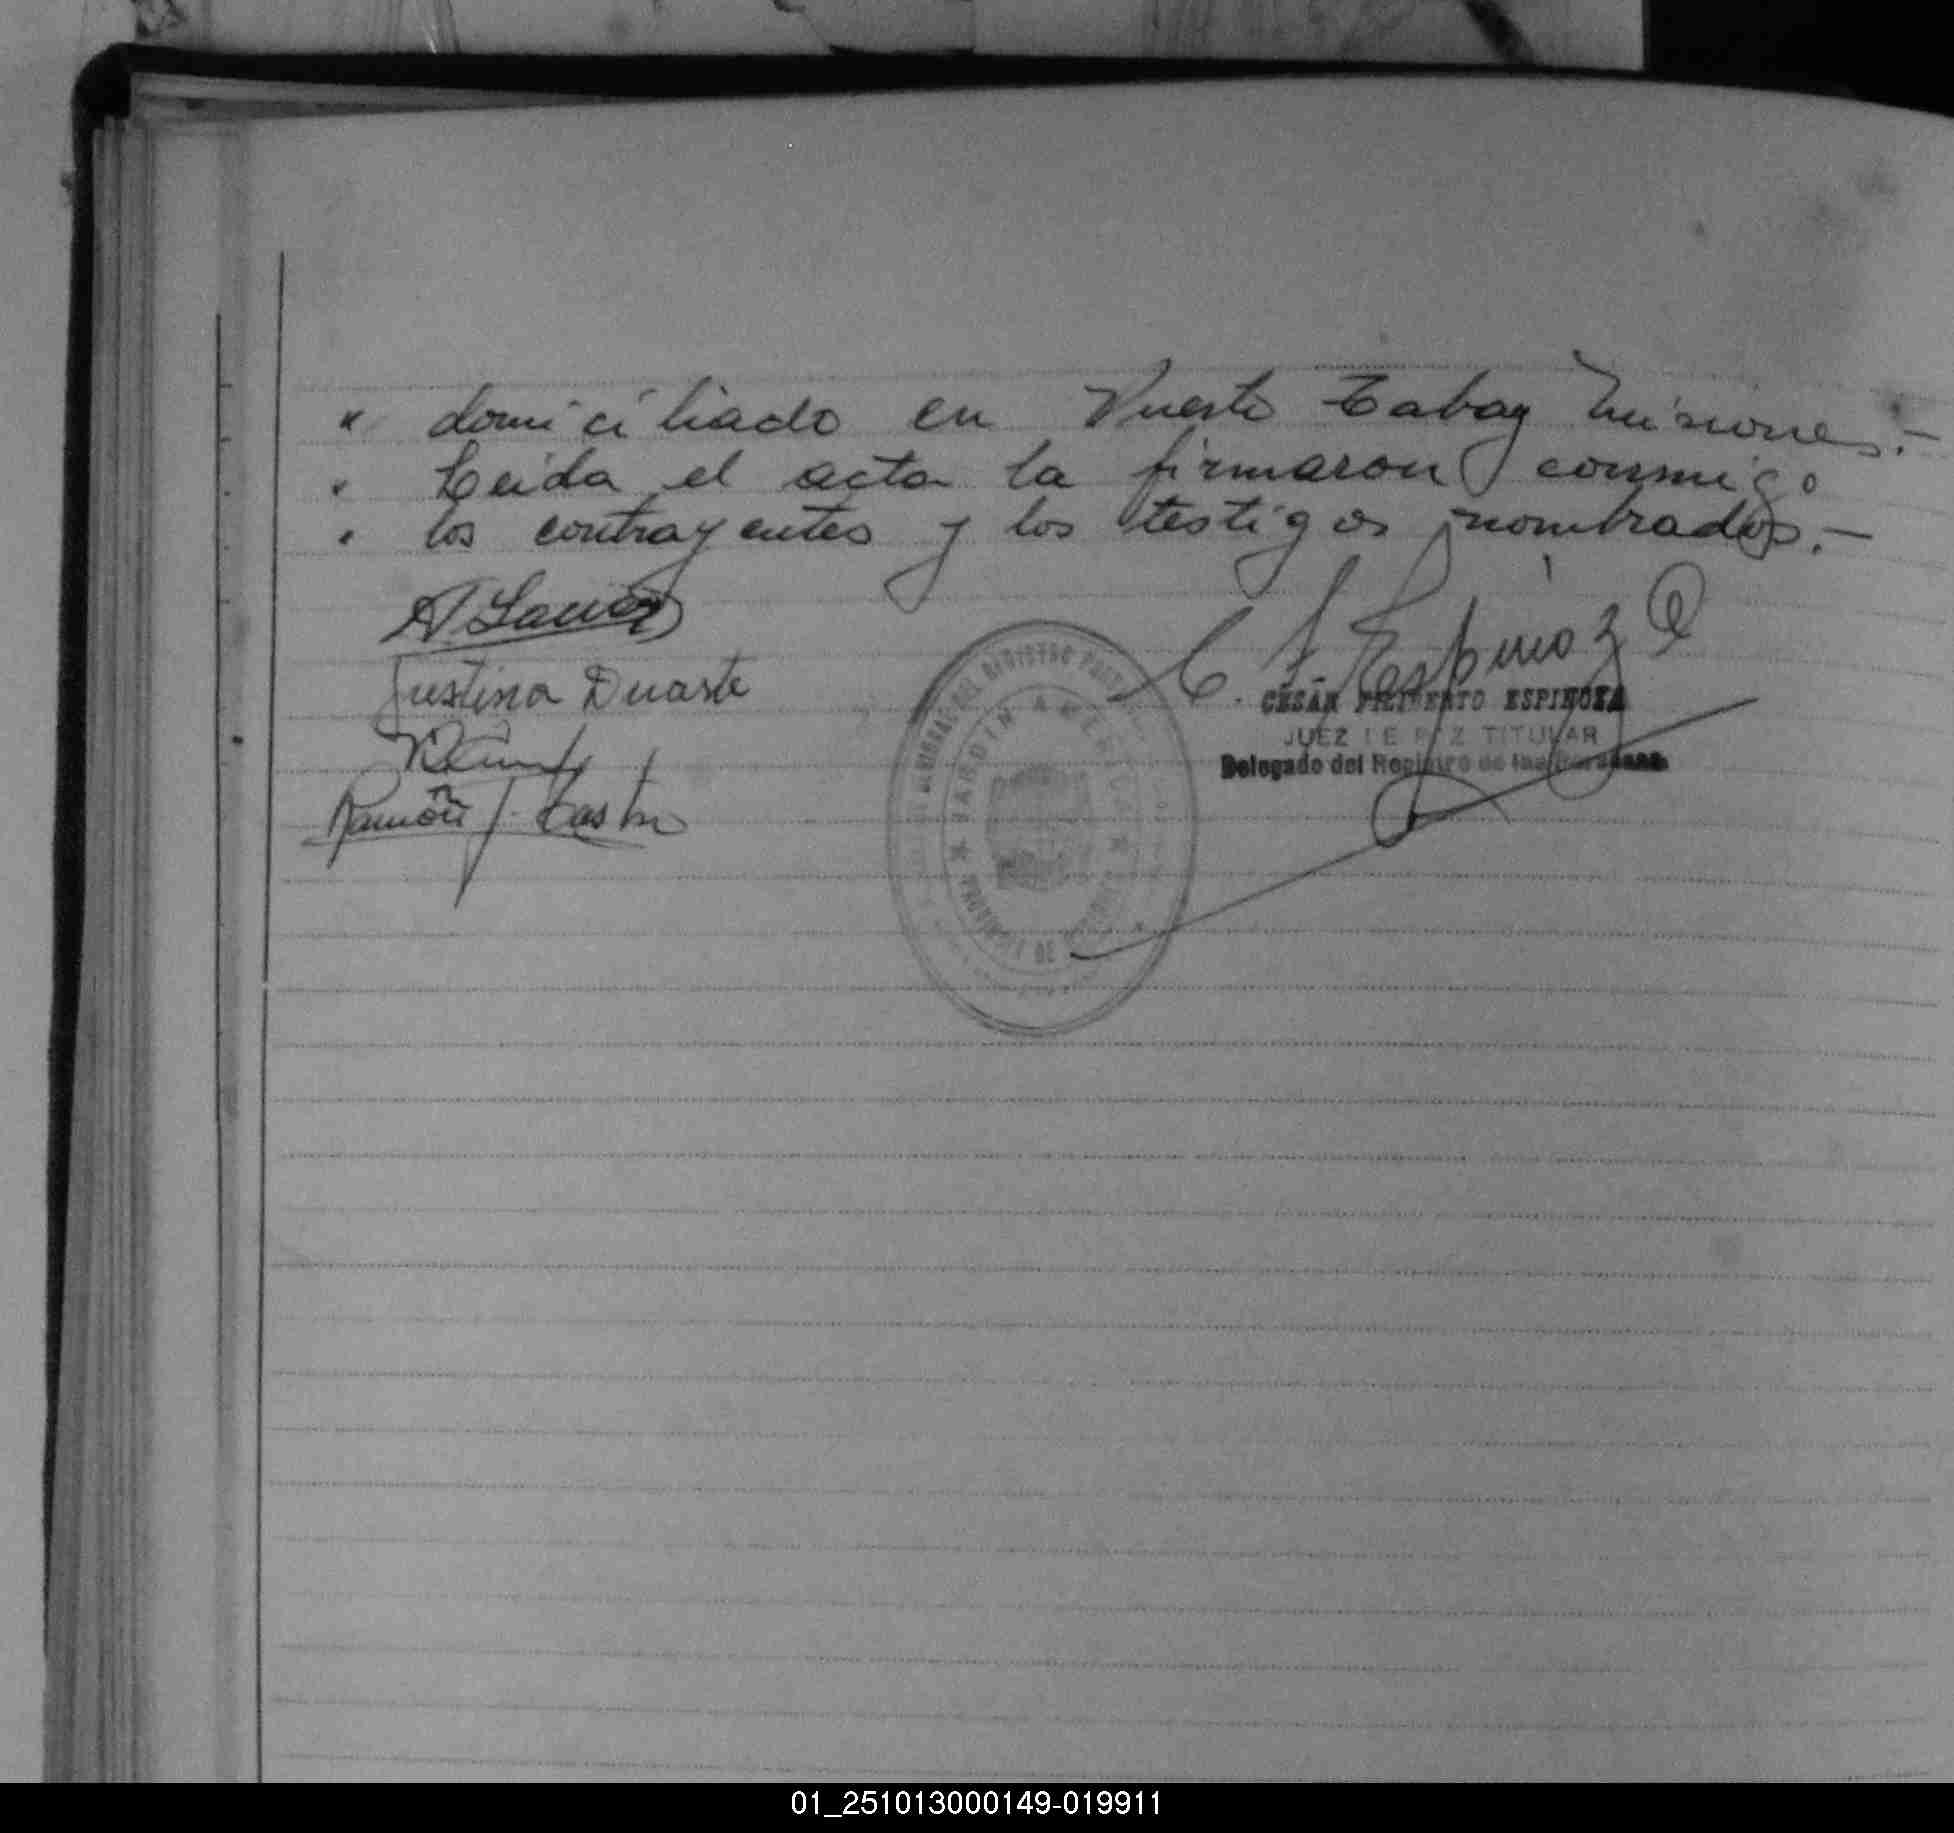 " domiciliado en Puerto Tabay Misiones.-
" Leida el acta la firmaron conmigo
" los contrayentes y los testigos nombrados.-
Justina Duarte
Ramón J. Castro
C. F. Espinoza
CÉSAR FILIBERTO ESPINOZA
JUEZ DE PAZ TITULAR
Delegado del Registro de las Personas
DEL REGISTRO
JARDIN AMERICA
PROVINCIA DE MISIONES
01_251013000149-019911